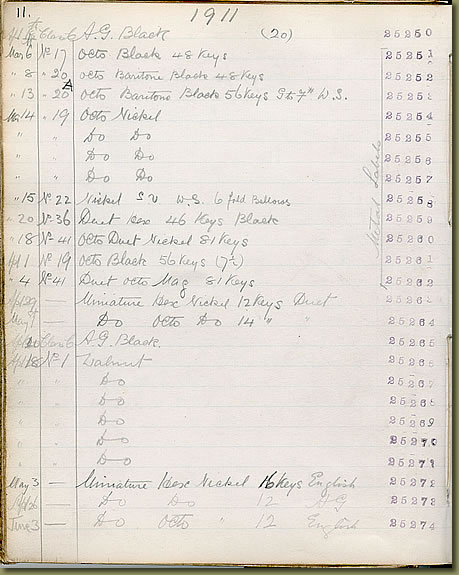 11. 1911
Class 6 A.G. Black (20) 25250
Mar 6 No 17 Octo Black 48 Keys 25251
" 8 " 20 Octo Baritone Black 48 Keys 25252
" 13 " 20A Octo Baritone Black 56 Keys G to 7" W.S. 25253
Mar 14 " 19 Octo Nickel 25254
" " Do Do 25255
" " Do Do 25256
" " Do Do 25257
" 15 No 22 Nickel S V W.S. 6 fold Bellows 25258
" 20 No 36 Duet Hex 46 Keys Black 25259
" 18 No 41 Octo Duet Nickel 81 Keys 25260
Apl 1 No 19 Octo Black 56 Keys 25261
" 4 No 41 Duet Octo Mag 81 Keys 25262
Apl 29 — Miniature Hex Nickel 12 Keys Duet
May 1 — Do Octo Do 14 " " 25264
Class 6 A.G. Black 25265
Apl 18 No 1 Walnut 25266
" " Do 25267
" " Do 25268
" " Do 25269
" " Do 25270
" " Do 25271
May 3 — Miniature Hex Nickel 16 Keys English 25272
— Do Do 12 AG 25273
June 3 — Do Octo " 12 English 25274
Metal Labels